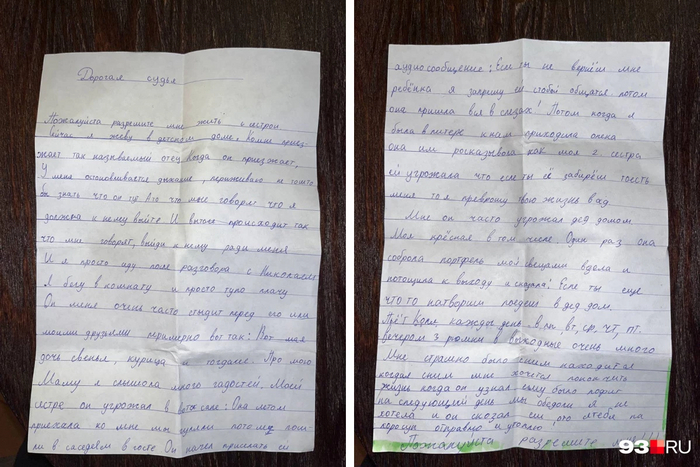 Дорогая судья
Пожалуйста разрешите мне жить с сестрой
сейчас я живу в детском доме. Комне приез-
жает так называемый отец когда он приезжает,
У меня остановивается дыхание, переживаю не потомто
бы знать что он тут А то что мне говорят что я
должна к нему выйти И вытоге происходит так
что мне говорят, выйди к нему ради меня
И я просто иду после разговора с Николаем
Я бегу в комнату и просто тупо плачу
Он меня очень часто стыдит перед его или
моими друзьями примерно вот так: Вот моя
дочь свенья, курица и тогдалие. Про мою
Маму я слышала много гадостей. Моей
сестре он угрожал в Она летом
приехала ко мне мы гуляли потом пош-
ли в соседям в госте Он начел присылать ей
аудиосообщение: Если ты не вернёш мне
ребёнка я запрещу ей стобой общятся потом
она пришла вся в слезах! Потом когда я
была в питере к нам приходила опека
она им росказывала как моя 2 сестра
ей угрожала что если ты её заберёш тоесть
меня то я преврощу твою жизнь в ад.
Мне он часто угрожал дед домом
Моя крёсная в том числе. Один раз она
собрала портфель мой вещами вдела и
потощила к выходу и сказала: Если ты ещё
что то натвориш поедеш в дед дом.
каждый день в пн вт, ср, чт, пт.
вечером 3 рюмки в выходные очень много
Мне страшно было сним находится
когдая сним мне хочется покончить
жизнь когда он узнал ему было подно
на следующий день мы обедоли я не
хотела и он сказал ещ, ато ятебя на
коросуп отправлю и утоплю
Пожалуйста разрешите
93.RU